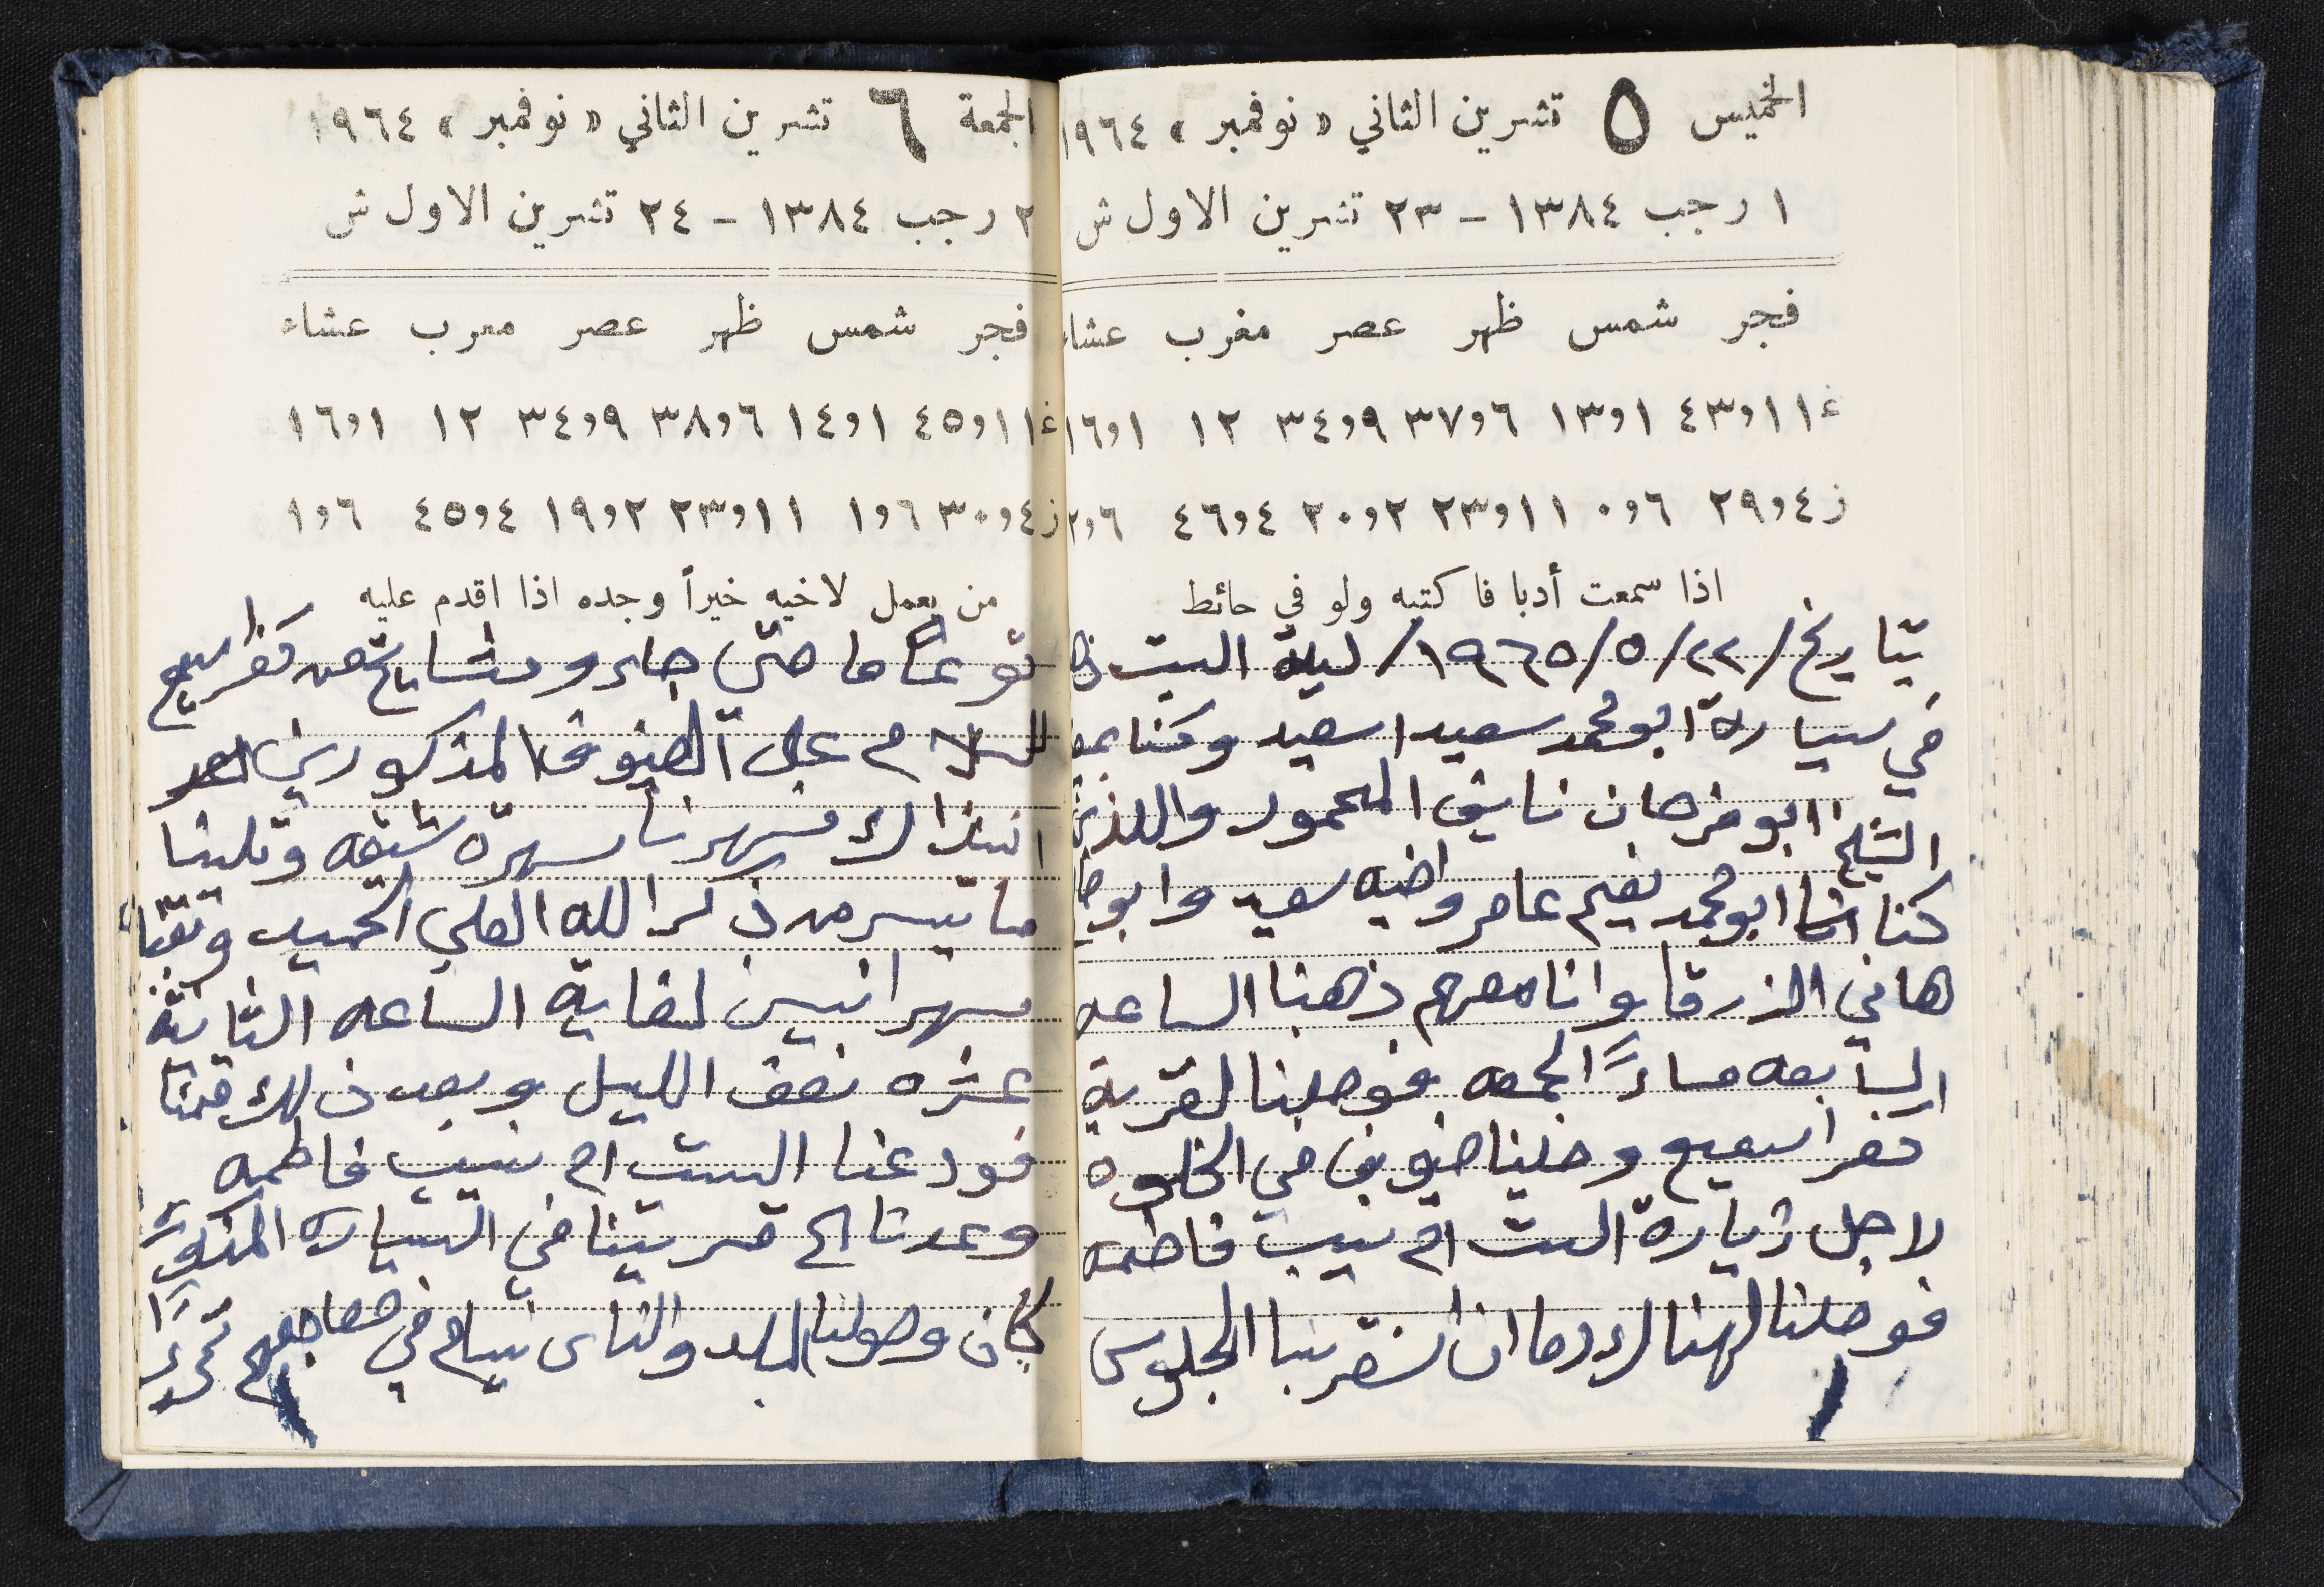 الخميس ٥ تشرين الثاني « نوفمبر » ١٩٦٤
١ رجب ١٣٨٤ – ٢٣ تشرين الاول ش
فجر شمس ظهر عصر مغرب عشاء
غ ١١و٤٣ ١و١٣ ٦و٣٧ ٩و٣٤ ١٢ ١و١٦
ز ٤و٢٩ ٦و٠ ١١و٢٣ ٢و٢٠ ٤و٤٦ ٦و٢
اذا سمعت أدبا فاكتبه ولو في حائط
بتاريخ /٢٢/٥/١٩٦٥/ ليلة السبت
في سيارة ابو محمد سعيد اسعيد وكنا
الشيخ ابو فرحان نايف المحمود والذين
كنا ابو محمد نعيم عامر واخيه سعيد وابو
هاني الزرقا وانا معهم ذهبنا الساعه
السابعه مساءً الجمعه فوصلنا لقرية
كفر اسميع وخلينا ضيوف في الخلوه
لاجل زيارة الست ام نسيب فاطمه
فوصلنا لهناك وما ان استقرينا الجلوس
الجمعة ٦ تشرين الثاني « نوفمبر » ١٩٦٤
٢ رجب ١٣٨٤ – ٢٤ تشرين الاول ش
فجر شمس ظهر عصر مغرب عشاء
غ ١١و٤٥ ١و١٤ ٦و٣٨ ٩و٣٤ ١٢ ١و١٦
ز ٤و٣٠ ٦و١ ١١و٢٣ ٢و١٩ ٤و٤٥ ٦و١
من يعمل لاخيه خيراً وجده اذا اقدم عليه
حتى جاءو مشايخ من كفر اسميع
للسلام على الضيوف المذكورين
انذاك فسهرنا سهرة شيقه وتلينا
ما تيسر من ذكر الله العلي الحميد وبقينا
سهرانين لغاية الساعه الثانية
عشره نصف الليل وبعد ذلك قمنا
فودعنا الست ام نسيب فاطمه
وعدنا الى قريتنا في السياره المذكوره
كان وصولنا البلد والناس نيام في مضاجعهم